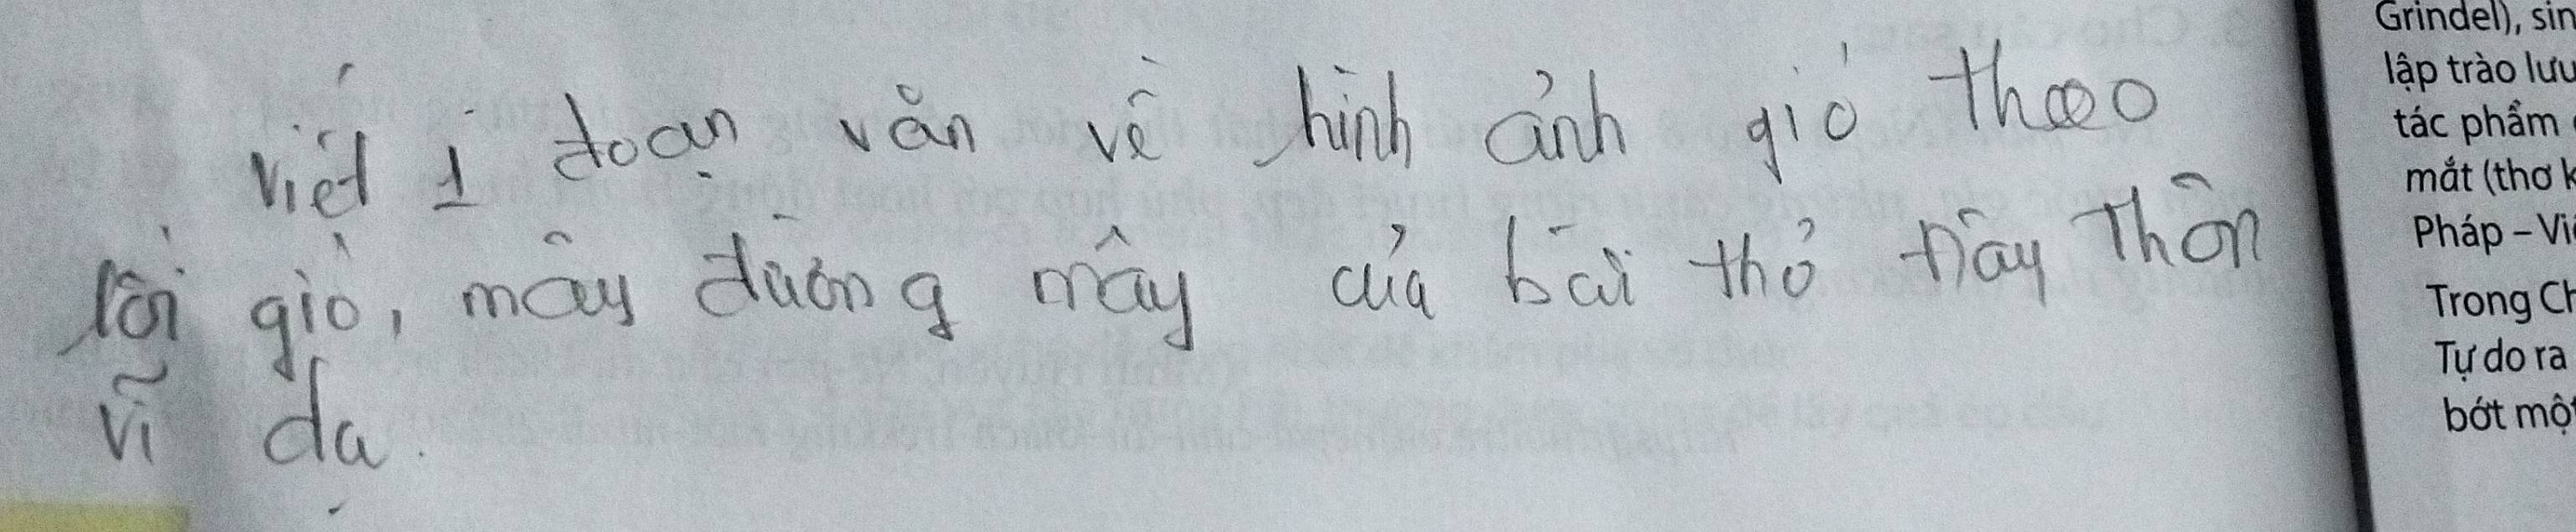 viết 1 đoạn văn về hình ảnh gió theo
lối gió, mây đường mây của bài thơ Đây Thôn
vĩ dạ.
Grindel), sin
lập trào lưu
tác phẩm
mắt (thơ k
Pháp – Vi
Trong Ch
Tự do ra
bớt mộ